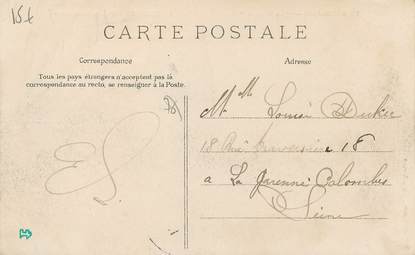 15t
CARTE POSTALE
Correspondance
Adresse
Tous les pays étrangers n'acceptent pas la
correspondance au recto, se renseigner à la Poste.
78
ES
M Mlle Louise
18 Rue 18
a La Garenne Colombes
Seine